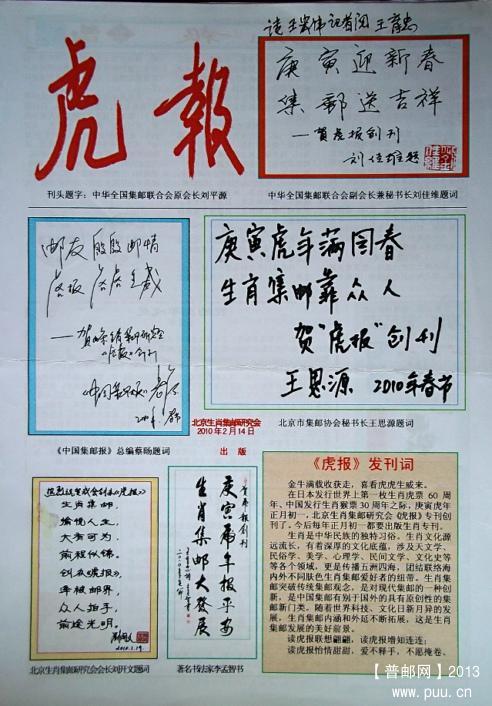 虎報
庚寅迎新春
集郵送吉祥
——賀虎报创刊
刘佳维题
刊头题字：中华全国集邮联合会原会长刘平源
中华全国集邮联合会副会长兼秘书长刘佳维题词
邮友殷殷邮情
虎报虎虎生威
庚寅虎年满园春
生肖集邮靠众人
贺"虎报"创刊
王思源 2010年春节
《中国集邮报》总编蔡旸题词
北京生肖集邮研究会
2010年2月14日
出版
北京市集邮协会秘书长王思源题词
生肖集邮,
愉悦人生,
大有可为,
前程似锦。
创办《虎报》,
享报邮界,
众人拍手,
前途光明。
2010.1.19.
北京生肖集邮研究会会长刘开文题词
庚寅虎年报平安
生肖集邮大发展
著名书法家李孟智书
《虎报》发刊词
金牛满载收获走，喜看虎虎生威来。
在日本发行世界上第一枚生肖虎票 60 周年、中国发行生肖猴票 30 周年之际，庚寅虎年正月初一，北京生肖集邮研究会《虎报》专刊创刊了。今后每年正月初一都要出版生肖专刊。
生肖是中华民族的独特习俗。生肖文化源远流长，有着深厚的文化底蕴，涉及天文学、民俗学、美学、心理学、民间文学、文化史等等各个领域，更是传播五洲四海，团结联络海内外不同肤色生肖集邮爱好者的纽带。生肖集邮突破传统集邮观念，是对现代集邮的一种创新，是中国集邮有别于国外的具有原创性的集邮新门类。随着世界科技、文化日新月异的发展，生肖集邮内涵和外延不断拓展，这是生肖集邮发展的美好前景。
读虎报联想翩翩，读虎报增知连连；
读虎报怡情甜甜，爱不释手，不愿掩卷、
【普邮网】2013
www.puu.cn